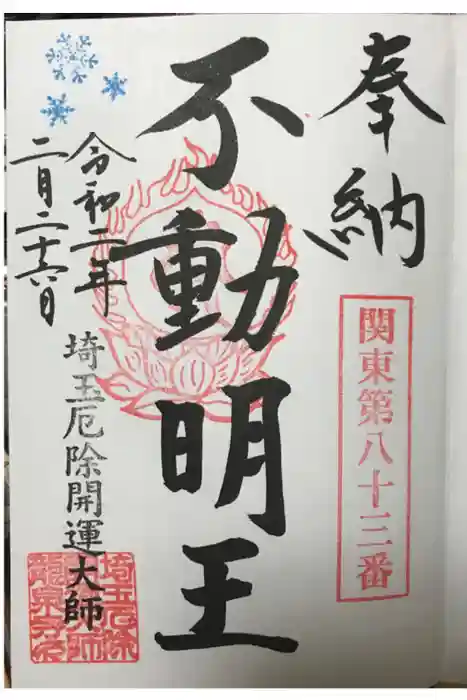 奉納
関東第八十三番
不動明王
令和二年
二月二十六日
埼玉厄除開運大師
埼玉厄除
大師
龍泉寺